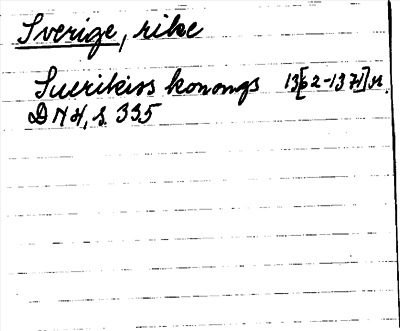 Sverige, rike
Suerikios konongs 13[62-1371] n.
DN 4, s. 335